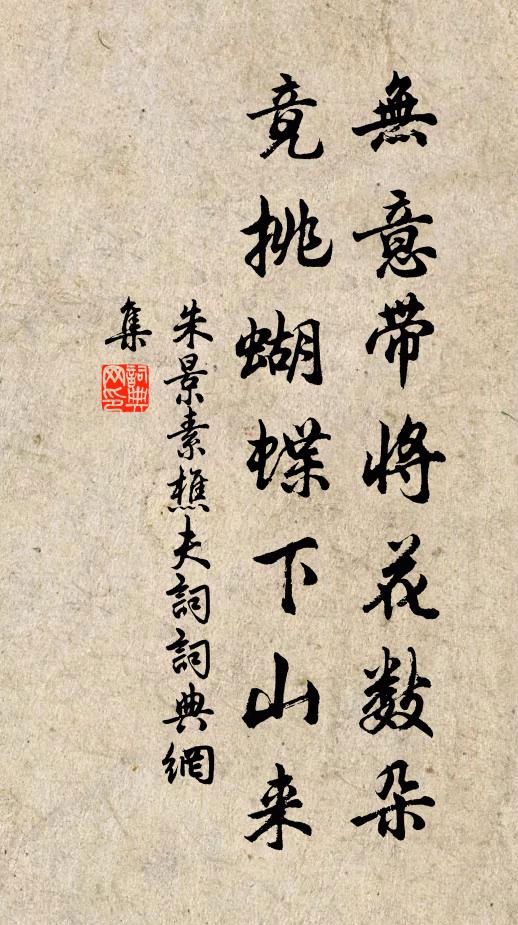 無意带将花数朵
竟挑蝴蝶下山来
朱景素樵夫詞詞典網
集
詞典
网印